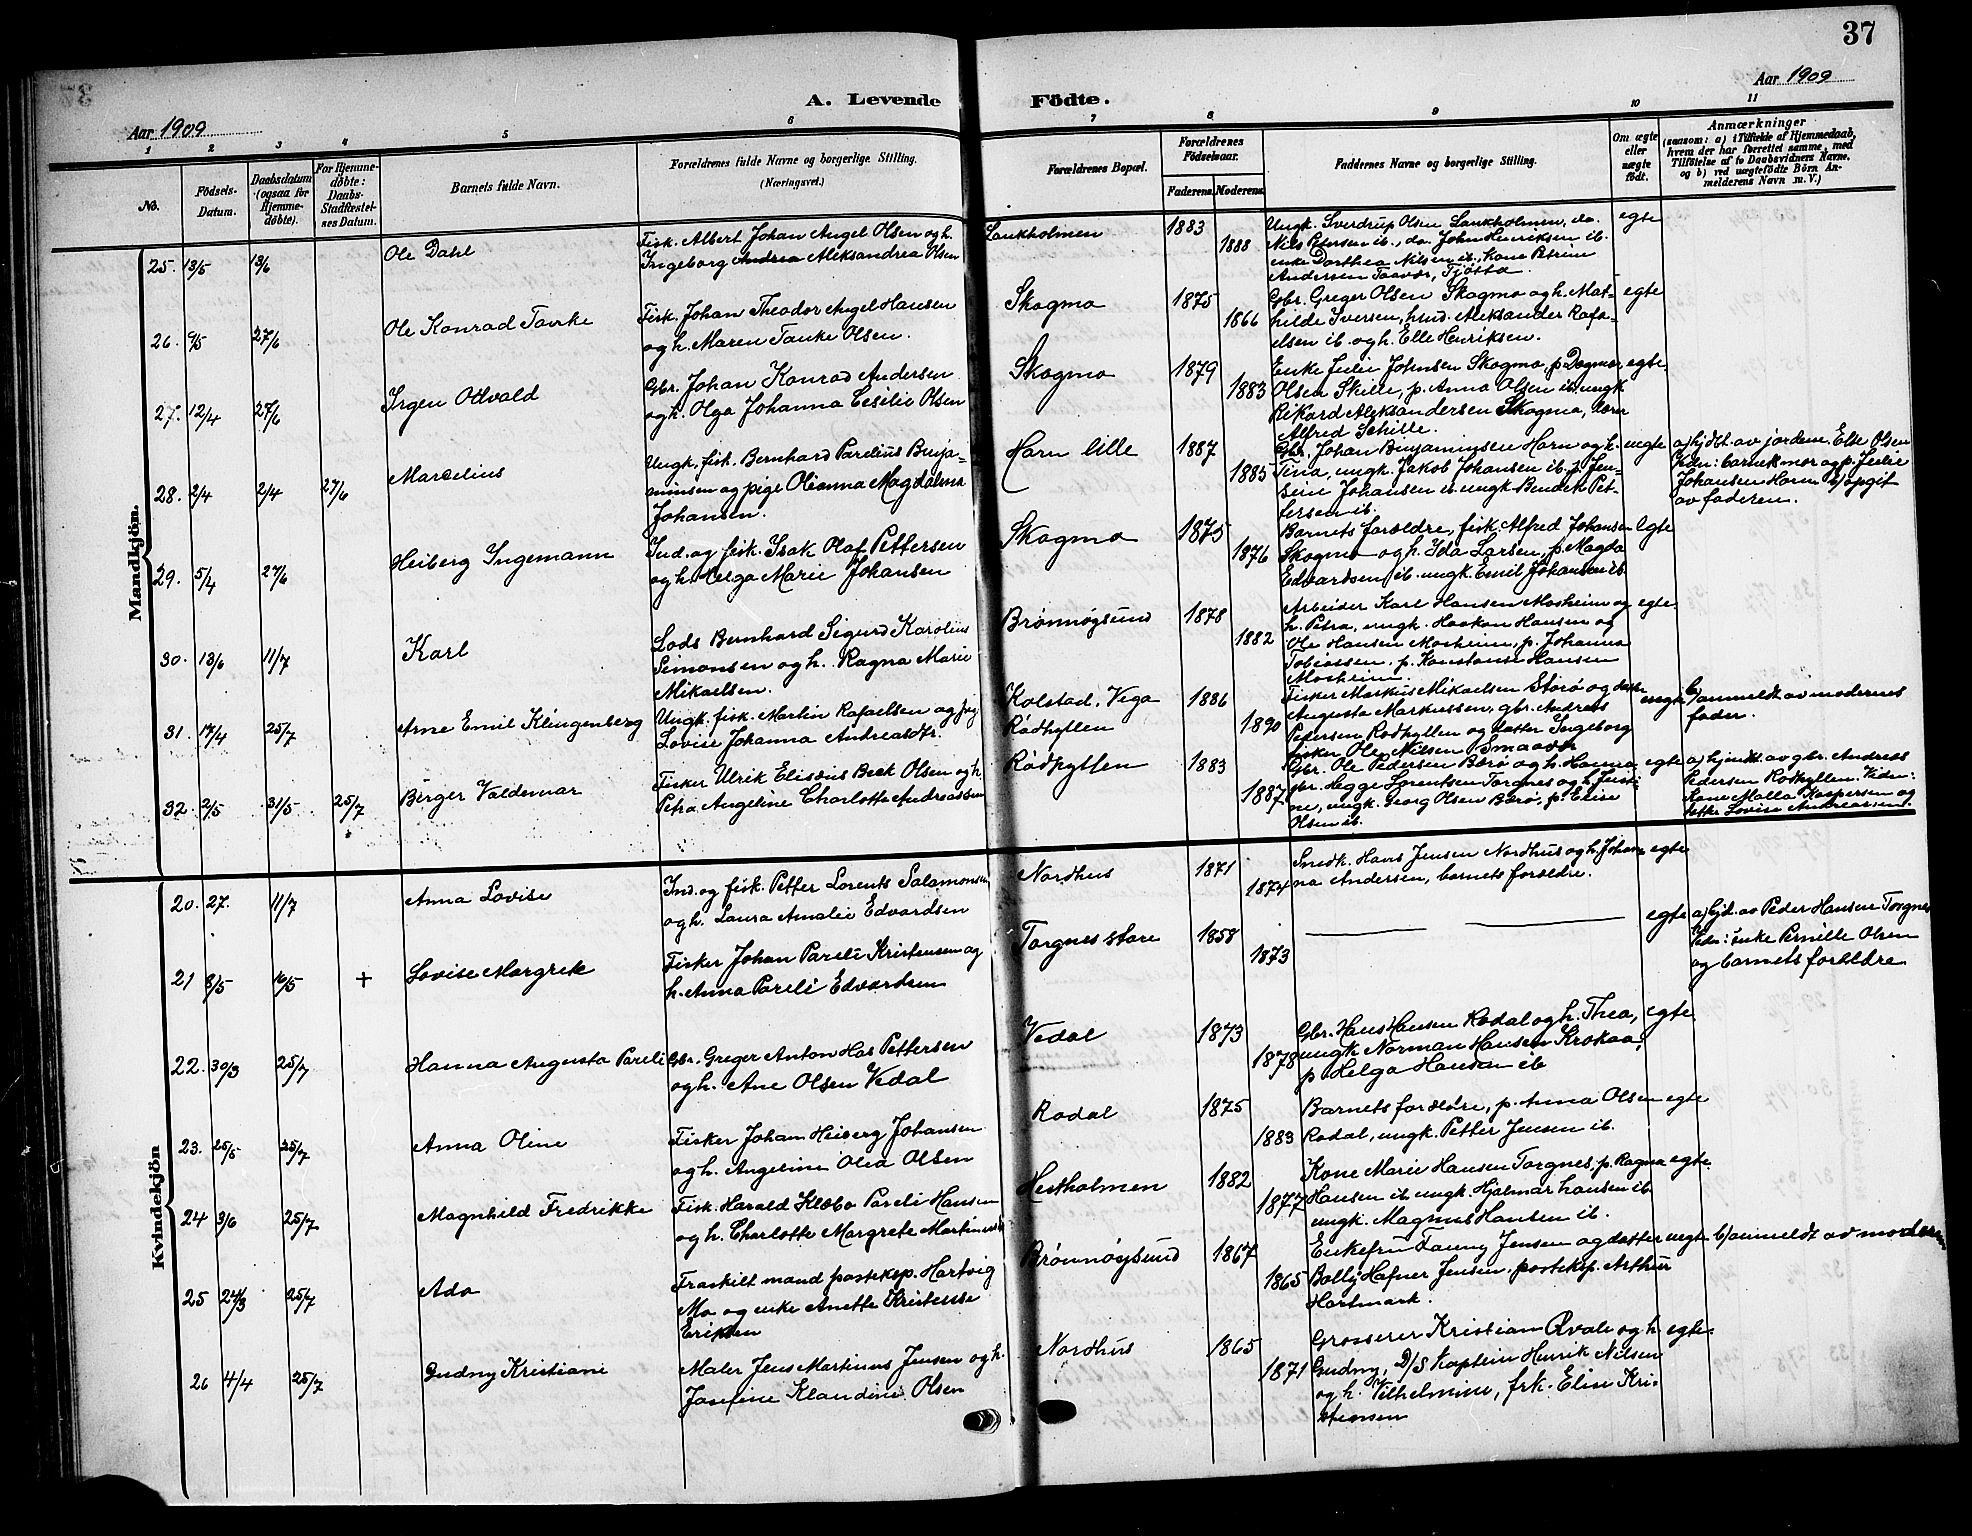 37
A. Levende Födte.
Aar 1909
Aar 1909
1 2 3 4 5 6 7 8 9 10 11
No.
Födsels-Datum.
Daabsdatum (ogsaa for Hjemme-döbte).
For Hjemme-döbte: Daabs-Stadfæstel-ses Datum.
Barnets fulde Navn.
Forældrenes fulde Navne og borgerlige Stilling.
(Næringsvei.)
Forældrenes Bopæl.
Forældrenes Födselsaar.
Faderens. Moderens.
Faddernes Navne og borgerlige Stilling.
Om ægte eller uægte födt.
Anmærkninger
(saasom: a) i Tilfælde af Hjemmedaab, hvem der har forrettet samme, med Tilföielse af to Daabsvidners Navne, og b) ved uægtefödte Börn Anmelderens Navn m. V.)
Mandkjön.
25. 13/5 13/6 Ole Dahl
Fisk. Albert Johan Angel Olsen og h.
Ingeborg Andrea Aleksandrea Olsen
Lankholmen 1883 1888
Ungk. Sverdrup Olsen Lankholmen, do.
Nils Petersen ib., do John Henriksen ib.
enke Dorthea Nilsen ib., kone Petrine
Andersen Taavær, Tjøtta.
egte
26. 9/5 27/6 Ole Konrad Tanke
Fisk. Johan Theodor Angel Hansen
og h. Maren Tanke Olsen.
Skogmo 1875 1866
Gbr. Greger Olsen Skogmo og h. Mat-
hilde Iversen, hmd. Aleksander Rafa-
elsen ib. og h. Elle Henriksen.
egte
27. 12/4 27/6 Irgen Otvald
Gbr. Johan Konrad Andersen
og h. Olga Johanna Cesilie Olsen
Skogmo 1879 1883
Enke Jeilie Johnsen Skogmo, p. Dagmar
Olsen Skille, p. Anna Olsen ib. ungk
Rikard Aleksandersen Skogmo, lærer
Alfred Schille.
egte
28. 2/4 2/4 27/6 Marselius
Ungk. fisk. Bernhard Parelius Benja-
minsen og pige Olianna Magdalena
Johansen.
Horn lille 1887 1885
Gbr. Johan Benjaminsen Horn og h.
Tina, ungk. Jakob Johansen ib. p. Jen-
sine Johansen ib. ungk Bendik Pet-
tersen ib.
uegte
a) hjdt. av jordem. Else Olsen
Vidn: barnets mor og p. Jeilie
Johansen Horn b) opgit
av faderen.
29. 5/4 27/6 Heiberg Ingemann
Ind. og fisk. Isak Olaf Pettersen
og h. Helga Marie Johansen
Skogmo 1875 1876
Barnets forældre, fisk. Alfred Johansen
Skogmo og h. Ida Larsen, p. Magda
Edvardsen ib. ungk. Emil Johansen ib.
egte
30. 13/6 11/7 Karl
Lods Bernhard Sigurd Karolius
Simonsen og h. Ragna Marie
Mikaelsen.
Brønnøysund 1878 1882
Arbeider Karl Hansen Mosheim og
h. Petra, ungk. Haakon Hansen og
Ole Hansen Mosheim, p. Johanna
Tobiassen, p. Konstanse Hansen
Mosheim.
egte.
31. 17/4 25/7 Arne Emil Klingenberg
Ungk. fisk. Martin Rafaelsen og pig
Lovise Johanna Andreasdtr.
Kolstad, Vega
Rödhyllen
1886 1890
Fisker Markus Mikaelsen Storø og datter
Augusta Markussen, gbr. Andreas
Petersen Rodhyllen og datter Ingeborg
fisker Ole Nilsen Smaavær
uegte
b) anmeldt av moderens
fader.
32. 2/5 31/5 25/7 Birger Valdemar
Fisker Ulrik Elisæus Beck Olsen og h.
Petra Angeline Charlotte Andreassen
Rödhyllen 1883 1887
Gbr. Ole Pedersen Bærø og h. Hanna
gbr. Hegge Lorentsen Torgnes og h. Jensi-
ne, ungk. Georg Olsen Bærø, p. Elise
Olsen ib.
egte
a) hjmdt. av gbr. Andreas
Pedersen Rodhyllen. Vidn:
Kone Malla Kaspersen og
datter Lovise Andreassen.
Kvindekjön
20. 27. 11/7 Anna Lovise
Ind. og fisk. Petter Lorents Salamonsen
og h. Laura Amalie Edvardsen
Nordhus 1871 1874
Smedk. Hans Jensen Nordhus og h. Johan-
na Andersen, barnets forældre.
egte
21 8/5 10/5 + Lovise Margrete
Fisker Johan Pareli Kristensen og
h. Anna Pareli Edvardsen
Torgnes store 1858 1873
egte
a) hjd. av Peder Hansen Torgnes
Vidn: enke Pernille Olsen
og barnets forældre
22. 30/3 25/7 Hanna Augusta Pareli
Gbr. Greger Anton Has Pettersen
og h. Ane Olsen Vedal
Vedal 1873 1878
Gbr. Hans Hansen Rodal og h. Thea,
ungk Norman Hansen Krokaa,
p Helga Hansen ib
egte
23. 25/5 25/7 Anna Oline
Fisker Johan Heiberg Johansen
og h. Angeline Olea Olsen
Rodal 1875 1883
Barnets forældre, p. Anna Olsen
Rodal, ungk. Petter Jensen ib.
egte
24 3/6 25/7 Magnhild Fredrikke
Fisk. Harald Klæbo Pareli Hansen
og h. Charlotte Margrete Martinussen
Hestholmen 1882 1877
Kone Marie Hansen Torgnes, p. Ragna
Hansen ib. ungk. Hjalmar hansen ib.
ungk. Magnus Hansen ib.
egte.
25 24/3 25/7 Ada
Fraskilt mand posteksp. Hartvig
Mo og enke Anette Kristense
Eriksen
Brønnøysund 1867 1865
Enkefru Fanny Jensen og datter
Bolly Hafner Jensen. posteksp. Arthur
Hartmark.
uegte
b) anmeldt av moderen
26 4/4 25/7 Gudny Kristiane
Maler Jens Martinus Jensen og h.
Josefine Klaudine Olsen
Nordhus 1865 1871
Grosserer Kristian Qvale og h
Gudny, D/S Kaptein Henrik Nilsen
og h. Vilhelmine, frk. Elise Kri-
stensen
egte.